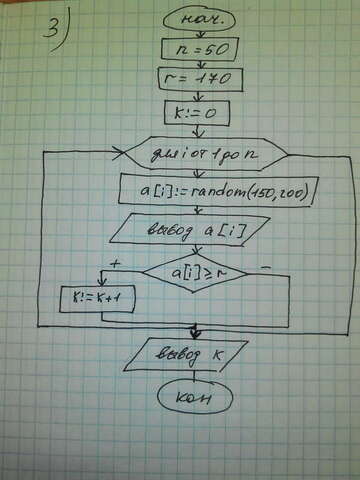 3)
нач.
n=50
r=170
k:=0
для i от 1 до n
a[i]:=random(150,200)
вывод a[i]
a[i]≥r
+
-
k:=k+1
вывод k
кон